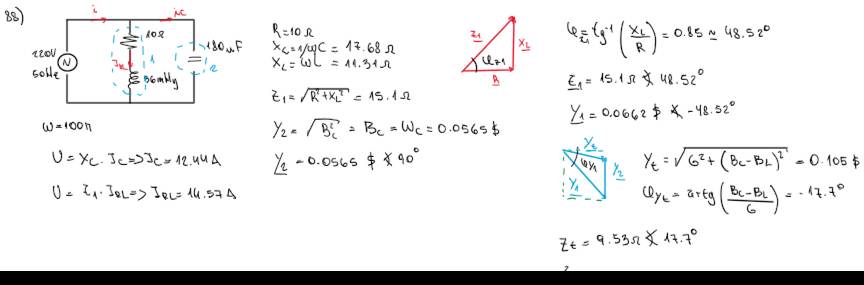 88)
i
ic
220V
50Hz
N
10Ω
IRL
36mHy
1
180uF
2
ω=100π
U = Xc. Ic => Ic = 12.44A
U = Z1. IRL => IRL = 14.57A
R=10Ω
Xc=1/ωC = 17.68Ω
XL=ωL = 11.31Ω
Z1 = √R²+XL² = 15.1Ω
Y2 = √Bc² = Bc = Wc = 0.0565$
Y2 = 0.0565 $ ∡ 90°
Z1
XL
φZ1
R
φZ1 = tg⁻¹ (XL/R) = 0.85 ≃ 48.52°
Z1 = 15.1Ω ∡ 48.52°
Y1 = 0.0662 $ ∡ -48.52°
Yt
φY1
Y2
Y1
Yt = √G²+(Bc-BL)² = 0.105 $
φYt = artg (Bc-BL/G) = -17.7°
Zt = 9.53Ω ∡ 17.7°